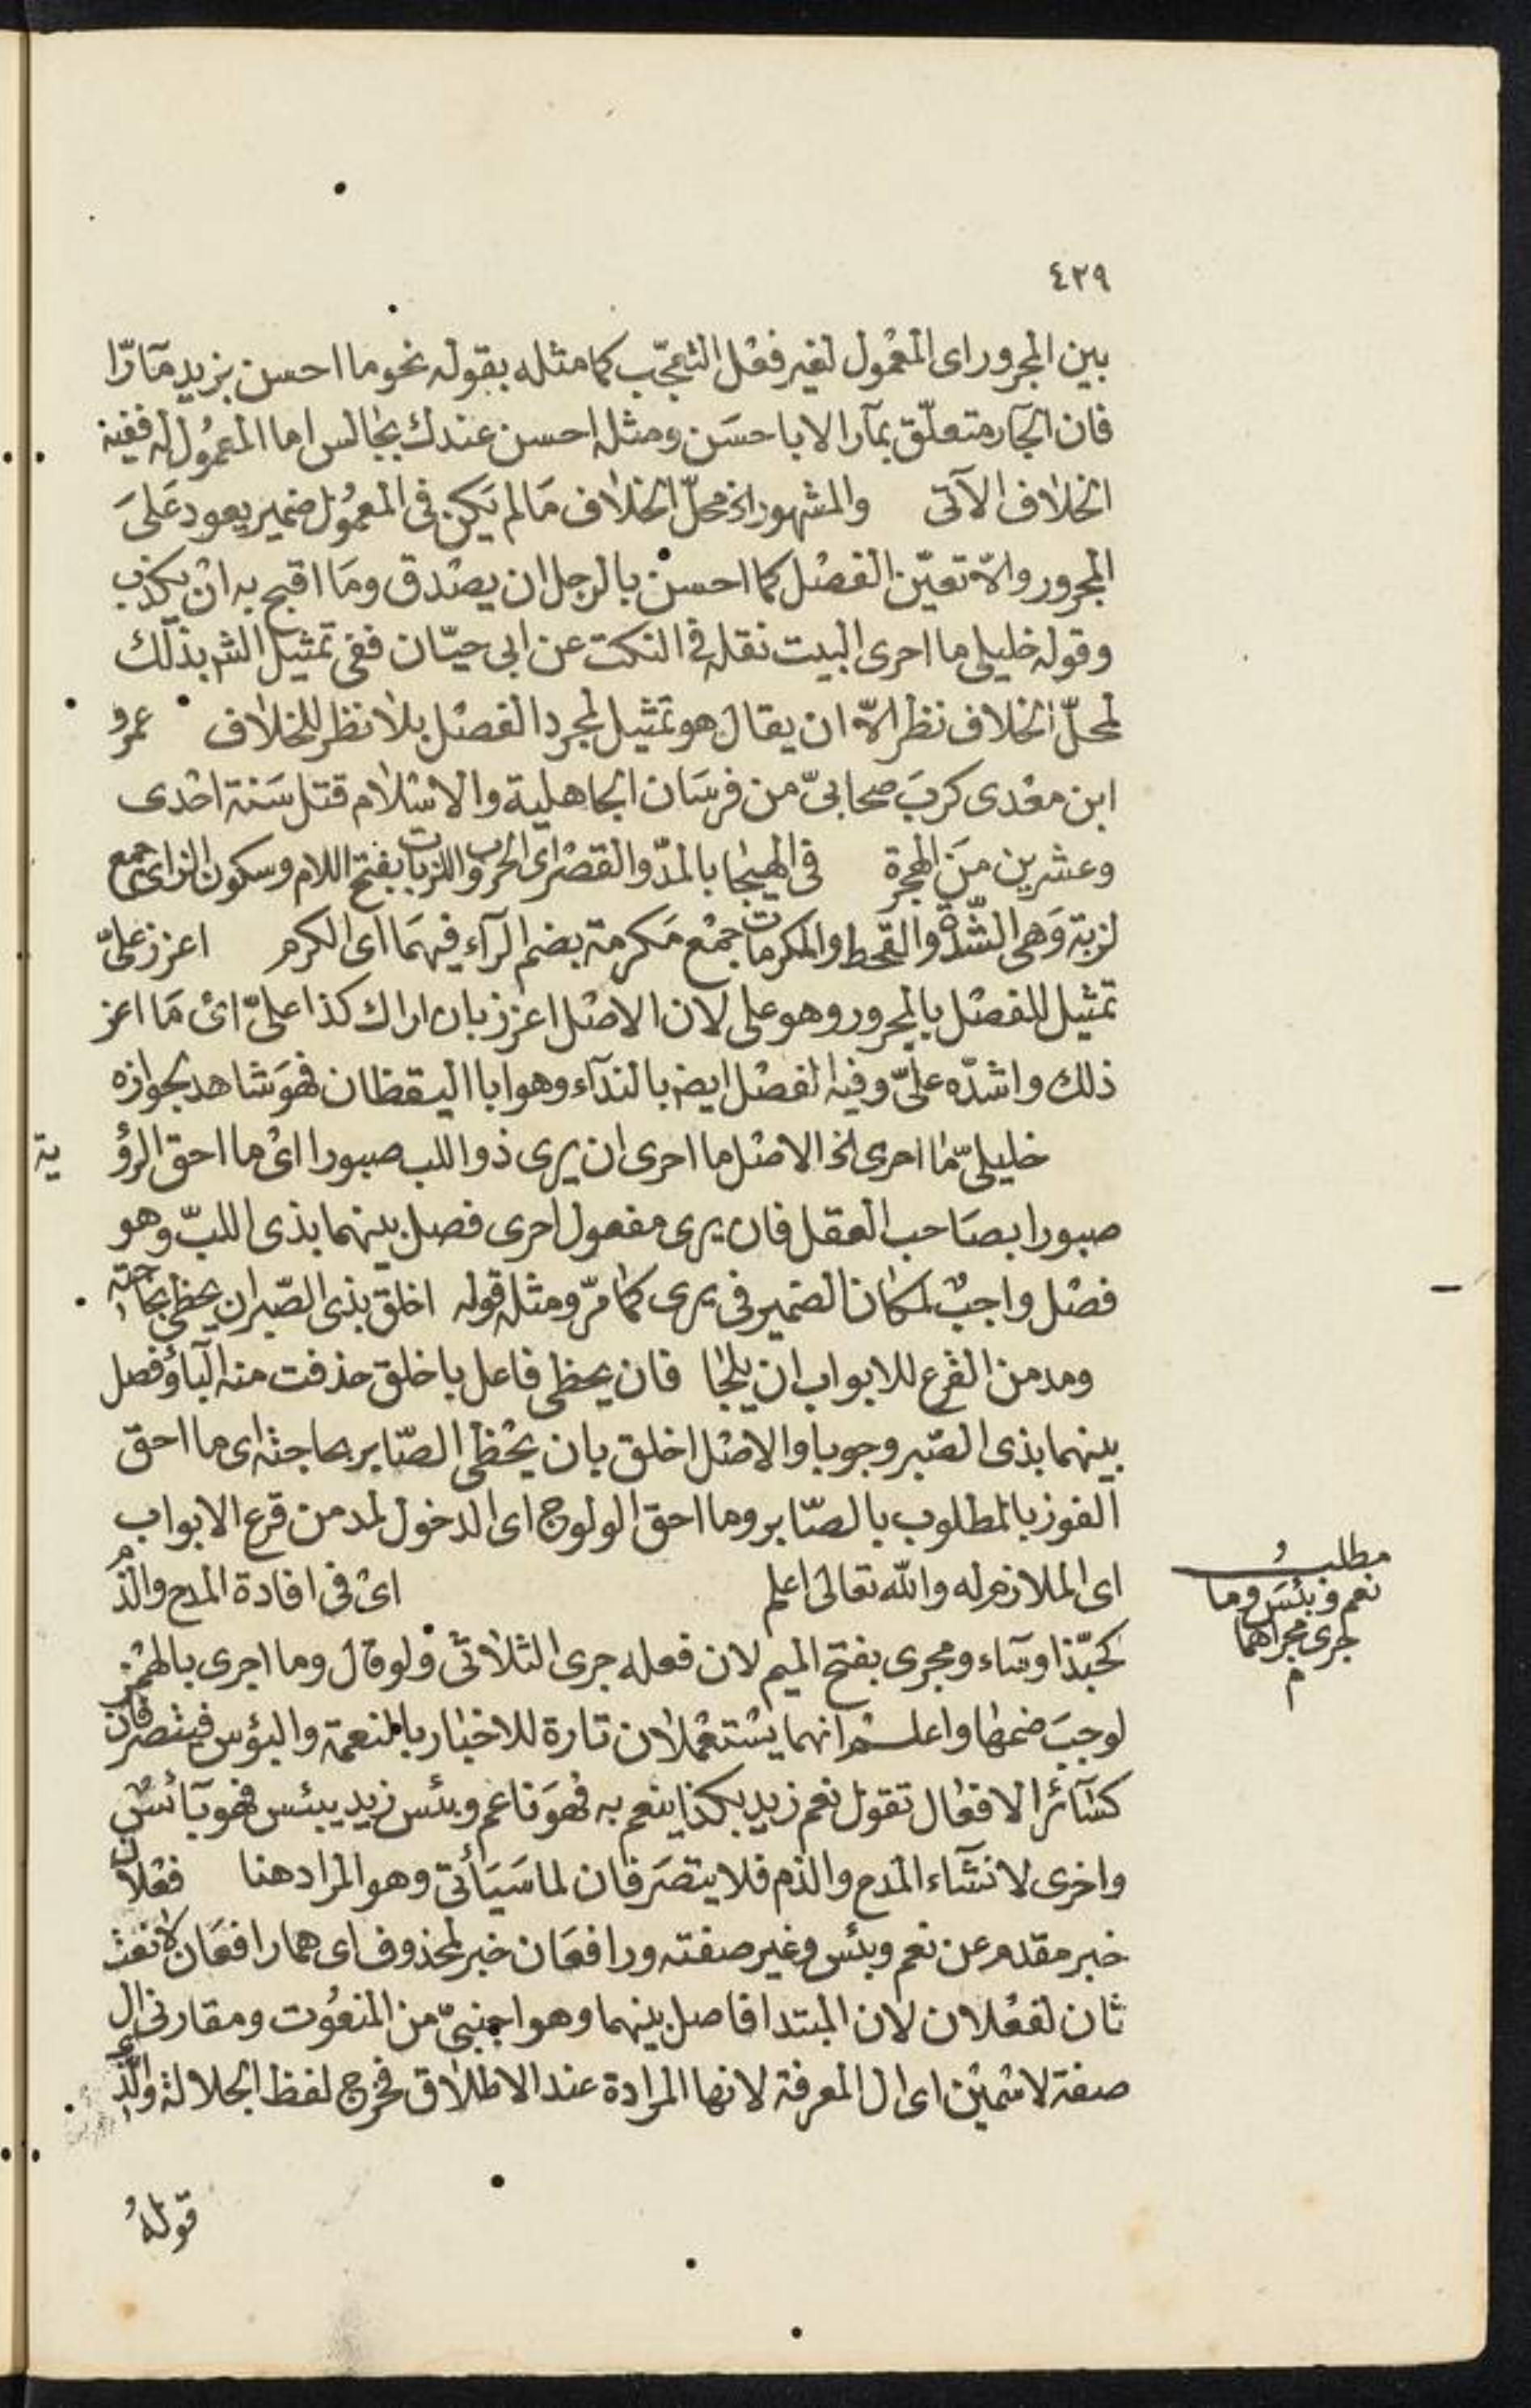 ٤٢٩
بين المجرور اى المعمول لغير فعل التعجّب كما مثله بقوله نحو ما احسن بزيد مآرّا
فان الجآر متعلّق بمآرا لا باحسَن ومثله احسن عندك بجالس اما المعمُول له ففيه
الخلاف الآتى والمشهور ان محلّ الخلاف مَا لم يَكن فى المعمُول ضمير يعود عَلىَ
المجرور والاّ تعيّن الفصْل كما احسنْ بالرجل ان يصْدق ومَا اقبح به انْ يكذب
وقوله خليلى ما احرى البيت نقله فى النكت عن ابى حيّان ففى تمثيل الشر بذلك
لمحلّ الخلاف نظر الاّ ان يقال هو تمثيل لمجرد الفصْل بلا نظر للخلاف عمرو
ابن معْدى كربَ صحابىّ من فرسَان الجاهلية والاسْلام قتل سَنة احْدى
وعشرين منَ الهجرة فى الهيجا بالمدّ والقصْر اى الحرب واللزبات بفتح اللام وسكون الزاى جمع
لزبة وَهى الشّدّة والقحط والمكرمات جمْع مَكرمة بضم الرآء فيهمَا اى الكرم اعزز علىّ
تمثيل للفصْل بالمجرور وهو على لان الاصْل اعزز بان اراك كذا علىّ اىْ مَا اعز
ذلك واشدّه علىّ وفيه الفصْل ايضا بالندآء وهو ابا اليقظان فهوَ شاهد بجوازه
خليلىّ ما احرى الخ الاصْل ما احرى ان يرى ذو اللب صبورا اىْ ما احق الرؤ ية
صبورا بصَاحب العقل فان يرى مفعول احرى فصل بينهما بذى اللبّ وهو
فصْل واجبٌ لمكان الضمير فى يرى كما مرّ ومثله قوله اخلق بذى الصّبر ان يحظى بحاجته
ومدمن القرع للابواب ان يلجا فان يحظى فاعل باخلق حذفت منه البآ وفصل
بينهما بذى الصّبر وجوبا والاصْل اخلق بان يحْظى الصّابر بحاجته اى ما احق
الفوز بالمطلوب بالصّابر وما احق الولوج اى الدخول لمدمن قرع الابواب
اى الملازم له والله تعالى اعلم اىْ فى افادة المدح والذم
كحبّذا وسآء ومجرى بفتح الميم لان فعله جرى الثلاثىّ ولو قال وما اجرى بالهمْز
لوجبَ ضمها واعلم انهما يسْتعْملان تارة للاخبار بالنعمة والبؤس فيتصرفان
كسآئر الافعال تقول نعم زيد بكذا ينعم به فهوَ ناعم وبئس زيد يبئس فهو بآئس
واخرى لانشآء المدح والذم فلا يتصَرفان لما سَيَأتى وهو المراد هنا فعْلان
خبر مقدم عن نعم وبئس وغير صفته ورافعَان خبر لمحذوف اى هما رافعَان لا نعت
ثان لفعْلان لان المبتدا فاصل بينهما وهو اجنبىّ من المنعُوت ومقارنى ال
صفة لاسْمينْ اى ال المعرفة لانها المرادة عند الاطلاق فخرج لفظ الجلالة والّذى
قولهُ
مطلب
نعم وبئسَ وما
جرى مجراهما
م